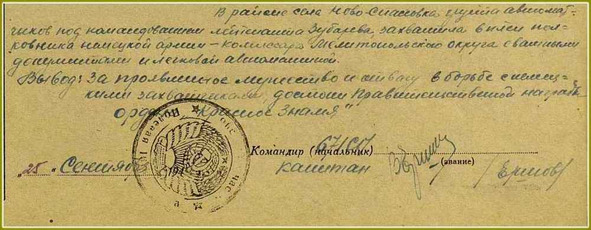 В районе села Ново-Спасовка группа автомат-
чиков под командованием лейтенанта Зубарева, захватила в плен пол-
ковника немецкой армии – комиссара Мелитопольского округа с важными
документами и легковой автомашиной.
Вывод: За проявленное мужество и отвагу в борьбе с немец-
кими захватчиками, достоин Правительственной награды
орден "Красное Знамя"
Командир (начальник)
„25" Сентября
капитан
(звание)
/Ершов/